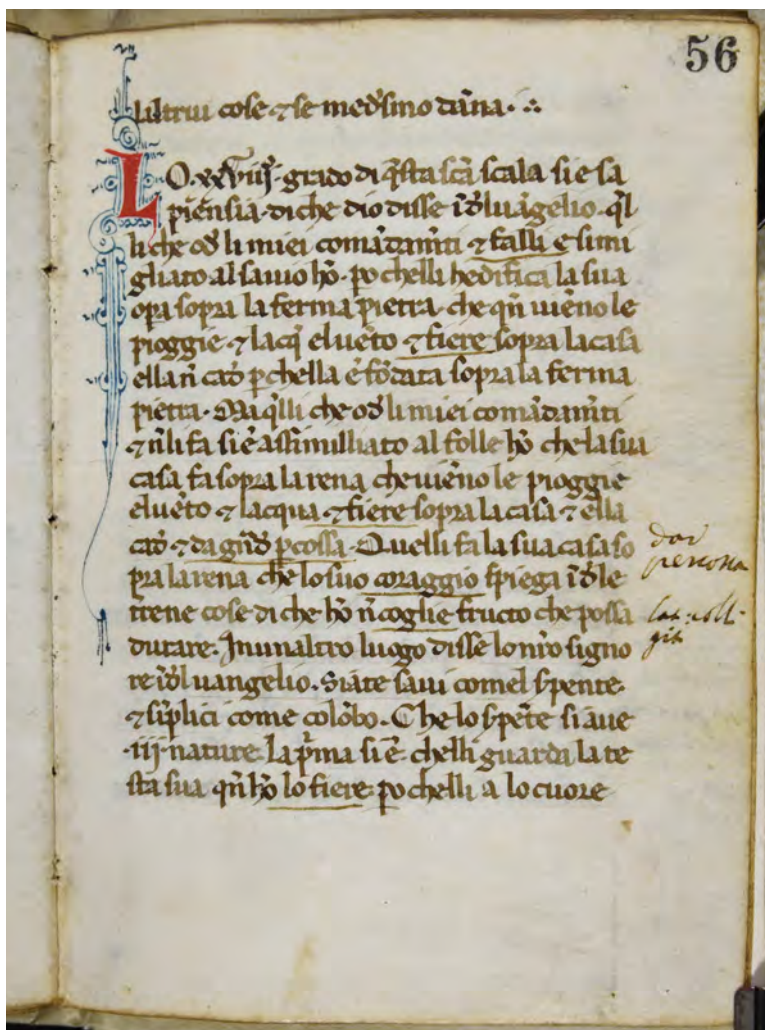 56
laltrui cose ⁊ se med̄simo dāna·
LO·xxviiij·grado di q̄sta scā scala sie sa
piēnsia·di che dio disse ī dluāgelio·q̄l
li che od li miei comādam̄ti ⁊ falli e simi
gliato al sauio hō·po chelli hedifica la sua
opa sopra la ferma pietra·che qn̄ uiēno le
pioggie·⁊ lacq̄ eluēto ⁊ fiere sopra la casa
ella n̄ cad p chella e fōdata sopra la ferma
pietra·Ma q̄lli che od li miei comādam̄ti
⁊ n̄ li fa sie assimilliato al folle hō che la sua
casa fa sopra la rena che uiēno le pioggie
eluēto ⁊ lacqua ⁊ fiere sopra la casa ⁊ ella
cad ⁊ da gn̄d pcossa·Quelli fa la sua casa so
pra la rena che lo suo coraggio spiega ī d le
trene cose di che hō n̄ coglie fructo che possa
durare·In unaltro luogo disse lo nr̄o signo
re ī dl uangelio·Siate saui comel spente·
⁊ sīplici come colōbo·Che lo spēte si aue
·iij·nature·la p̄ma si e chelli guarda la te
sta sua qn̄ hō lo fiere·po chelli a lo cuore
dar
percossa
lat: coll-
git